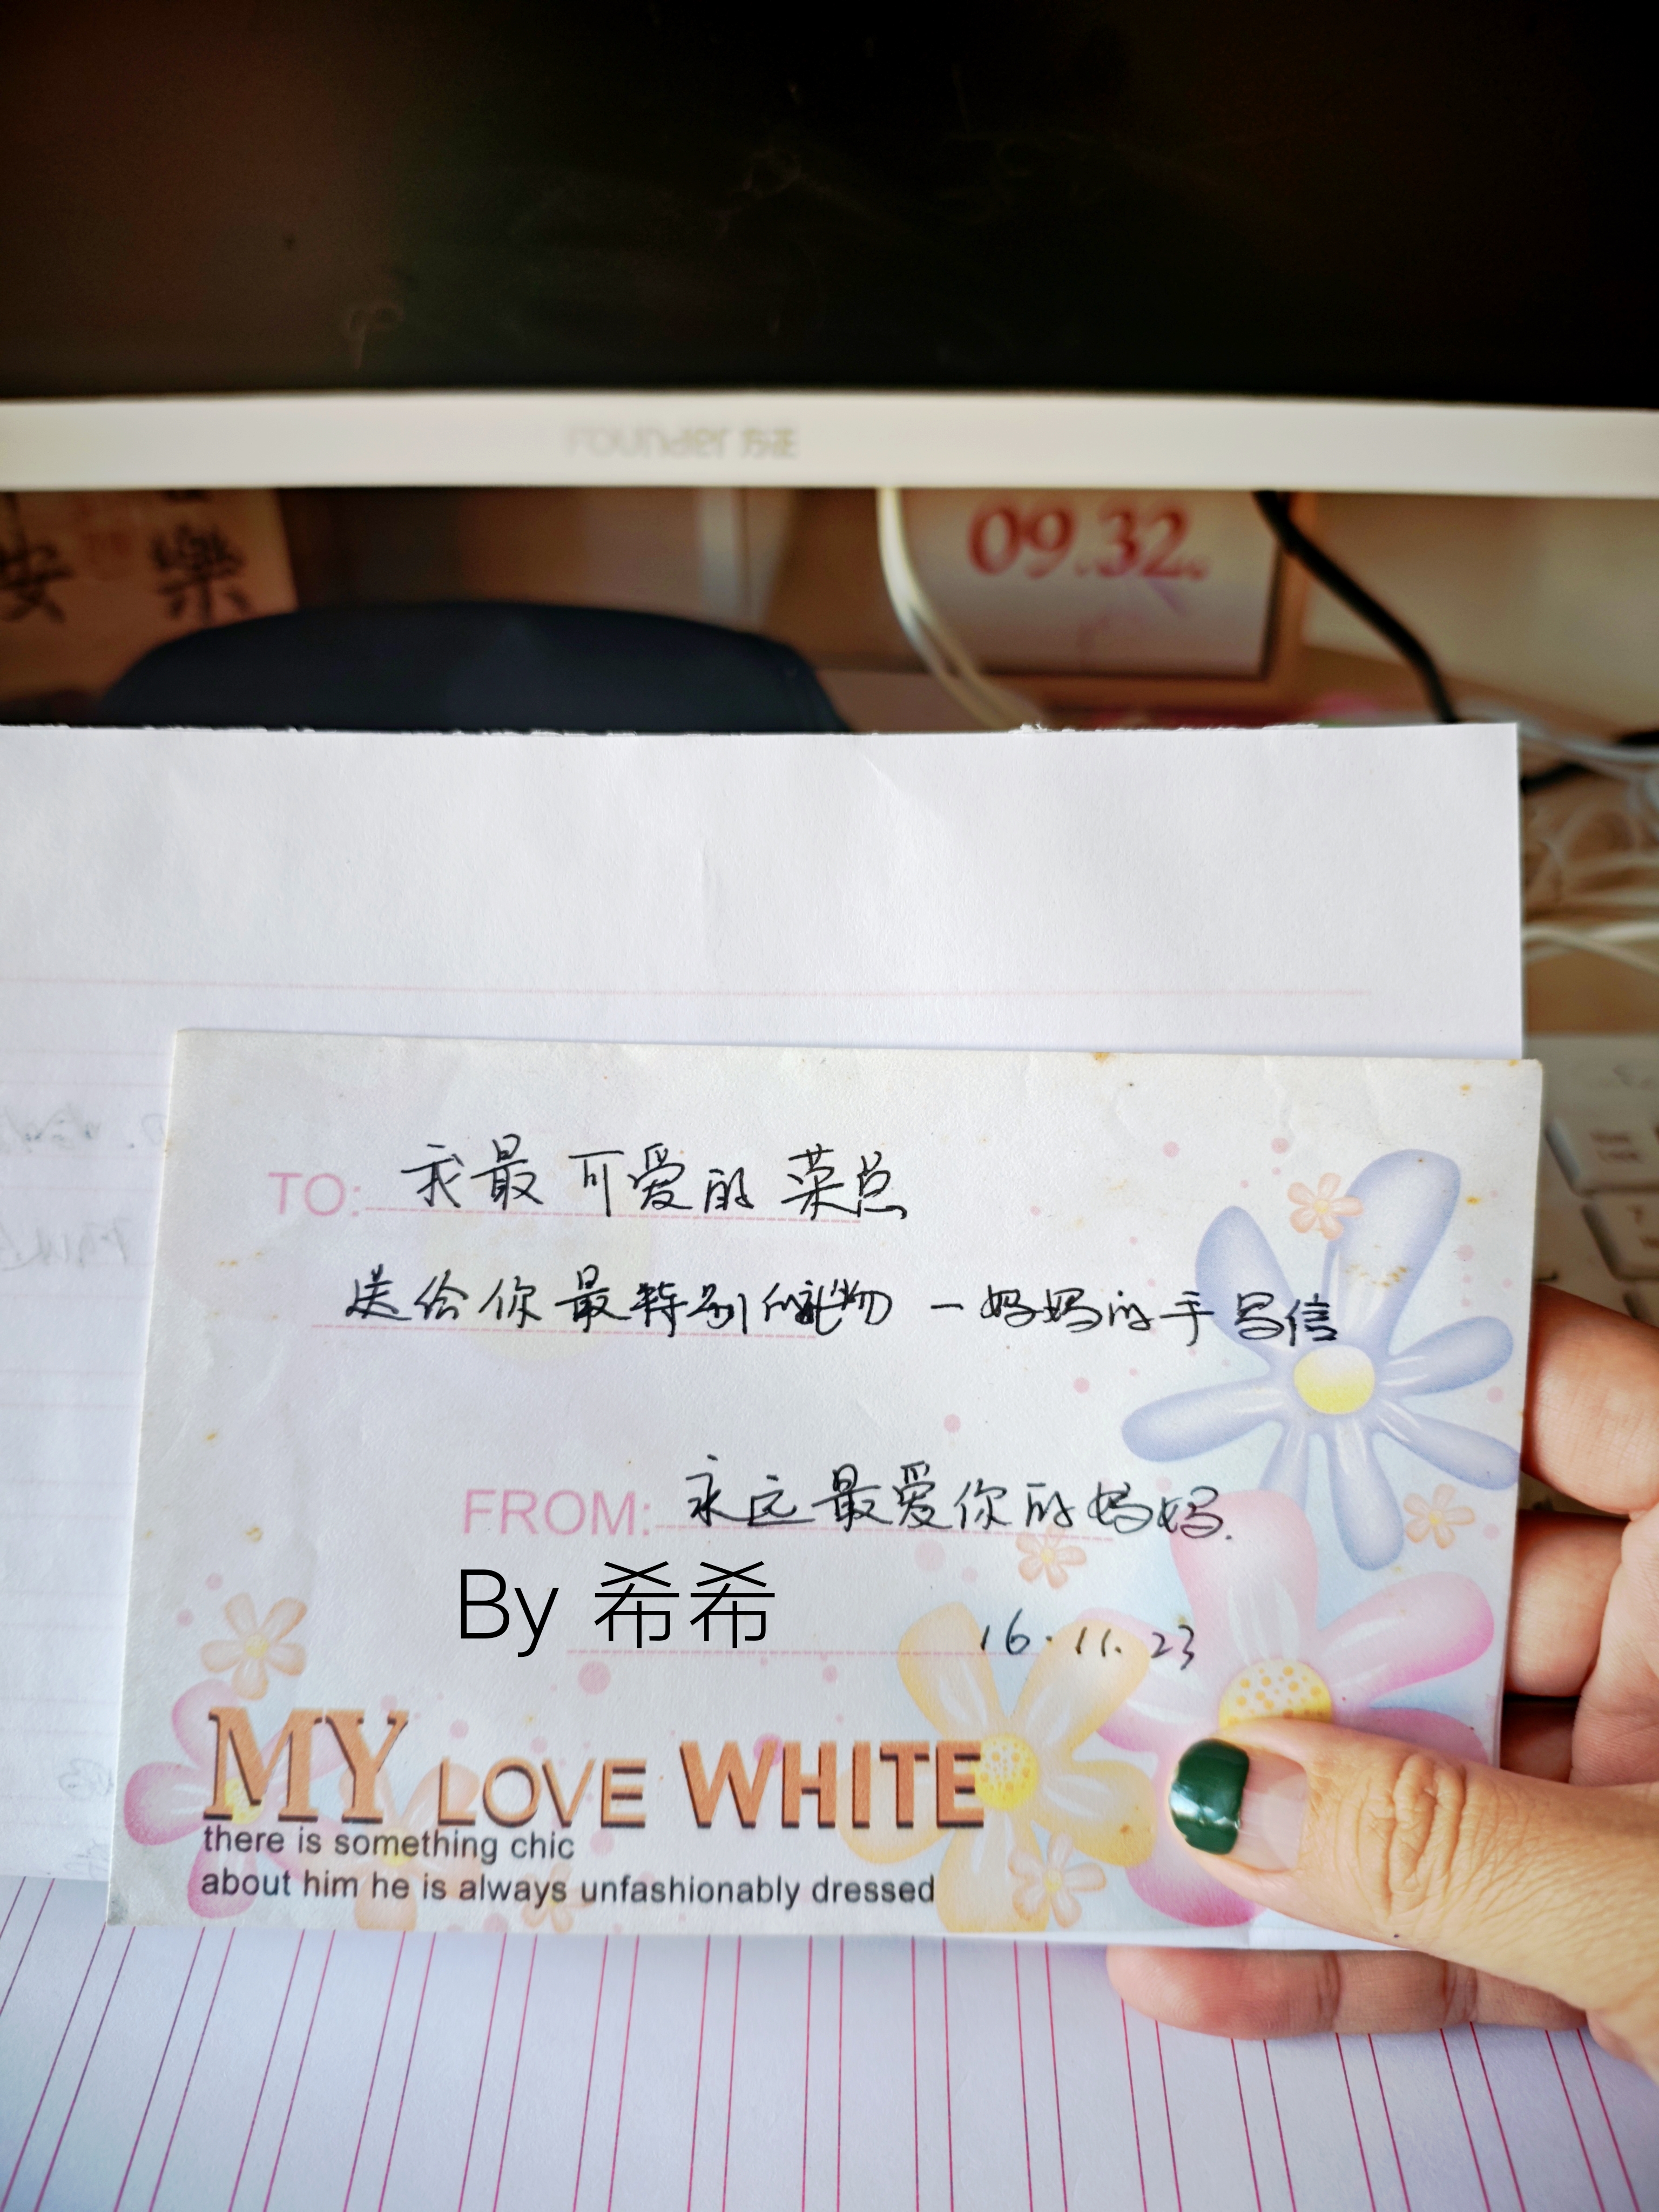 Founder 方正
安 樂
09.32
TO: 我最可爱的菜总
送给你最特别的礼物 — 妈妈的手写信
FROM: 永远最爱你的妈妈.
By 希希
16.11.23
MY LOVE WHITE
there is something chic
about him he is always unfashionably dressed